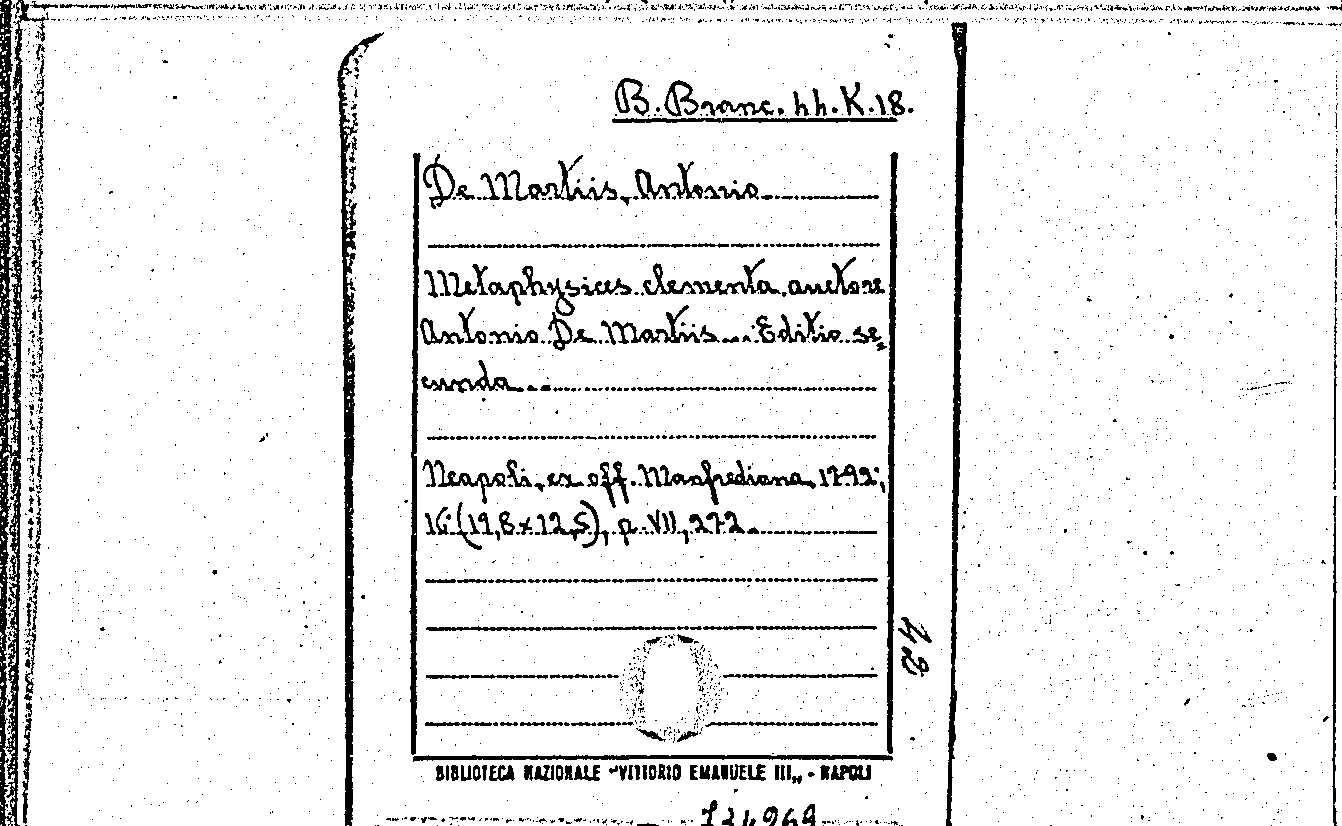 B. Branc. hh. K. 18.
De Martiis, Antonio
Metaphysices elementa auctore
Antonio De Martiis... Editio se=
cunda...
Neapoli, ex off. Manfrediana, 1792;
16° (19,8 x 12,5), p. VII, 272.
42
BIBLIOTECA NAZIONALE "VITTORIO EMANUELE III„ - NAPOLI